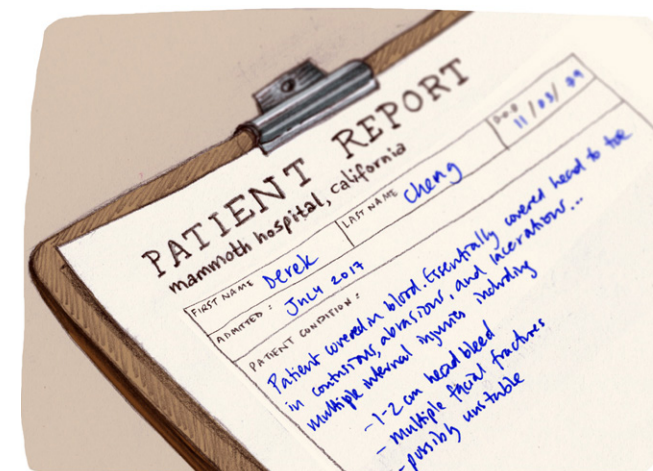 PATIENT REPORT
mammoth hospital, california
FIRST NAME Derek LAST NAME Cheng D.O.B 11/03/89
ADMITTED: July 2017
PATIENT CONDITION:
Patient covered in blood. Essentially covered head to toe
in contusions, abrasions, and lacerations...
multiple internal injuries including
-1-2 cm head bleed
- multiple facial fractures
- possibly unstable